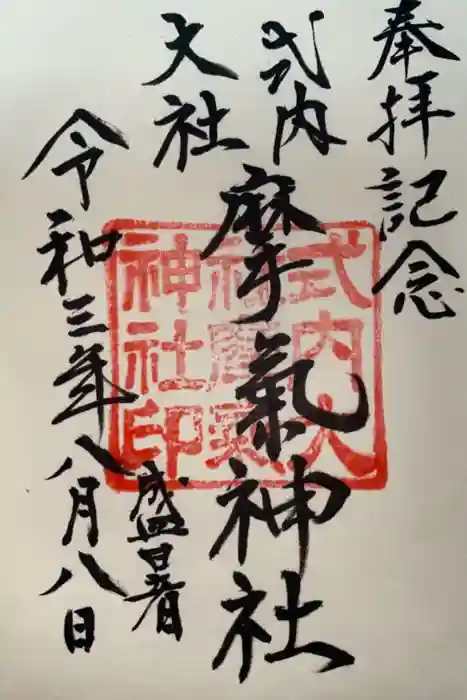 奉拝記念
式内
大社
摩氣神社
令和三年八月八日
盛暑
式内大
社摩氣
神社印